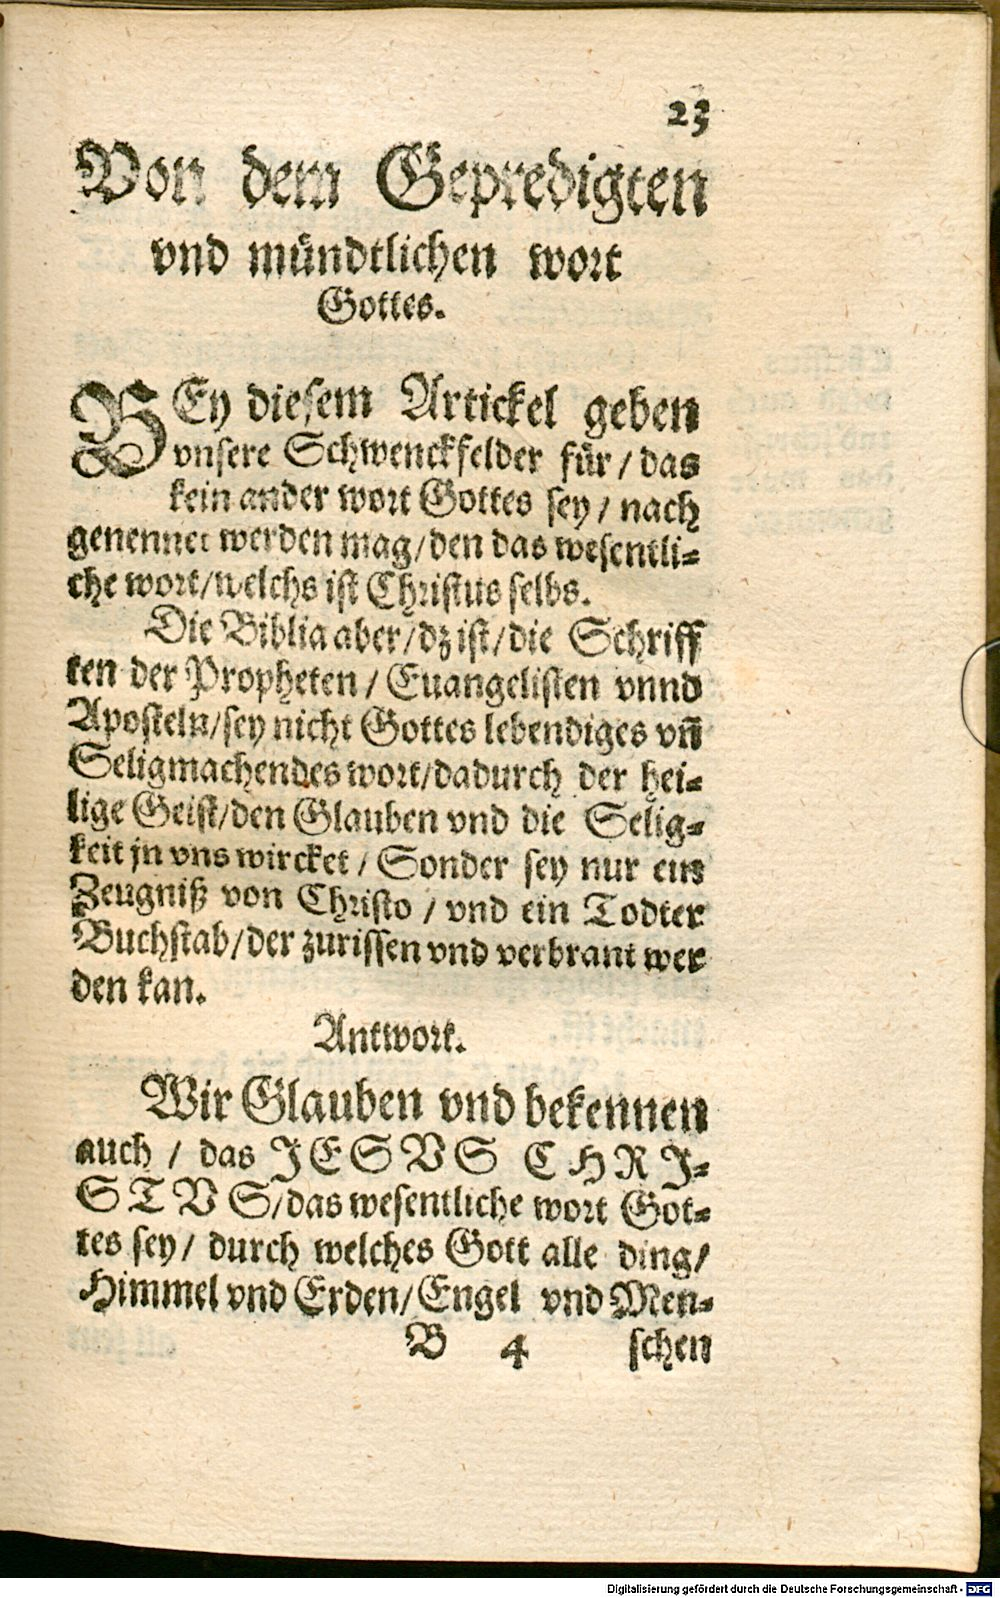 23
Von dem Gepredigten
vnd mündtlichen wort
Gottes.
BEy diesem Artickel geben
vnsere Schwenckfelder für / das
kein ander wort Gottes sey / nach
genennet werden mag / den das wesentli-
che wort / welchs ist Christus selbs.
Die Biblia aber / dz ist / die Schriff
ten der Propheten / Euangelisten vnnd
Aposteln / sey nicht Gottes lebendiges vñ
Seligmachendes wort / dadurch der hei-
lige Geist / den Glauben vnd die Selig-
keit jn vns wircket / Sonder sey nur ein
Zeugniß von Christo / vnd ein Todter
Buchstab / der zurissen vnd verbrant wer
den kan.
Antwort.
Wir Glauben vnd bekennen
auch / das JESVS CHRJ-
STVS / das wesentliche wort Got-
tes sey / durch welches Gott alle ding /
Himmel vnd Erden / Engel vnd Men-
B 4 schen
Digitalisierung gefördert durch die Deutsche Forschungsgemeinschaft - DFG